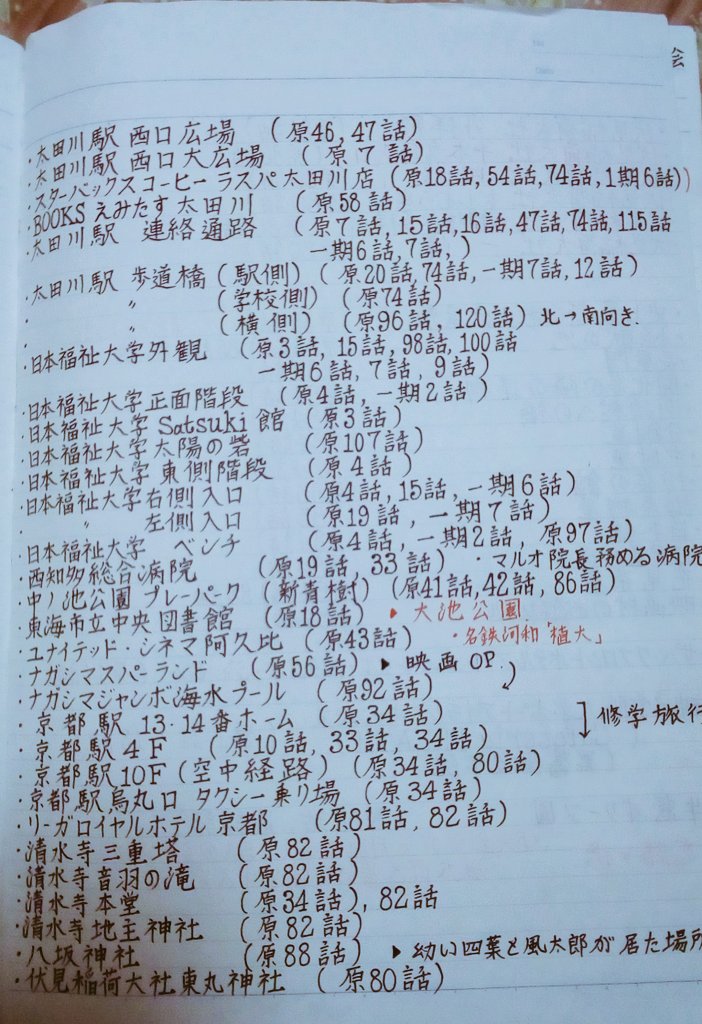 会
・太田川駅 西口広場 （原46,47話）
・太田川駅 西口大広場 （原7話）
・スターバックスコーヒー ラスパ太田川店（原18話,54話,74話,1期6話)）
・BOOKS えみたす太田川 （原58話）
・太田川駅 連絡通路 （原7話,15話,16話,47話,74話,115話
一期6話,7話,）
・太田川駅 歩道橋（駅側）（原20話,74話,一期7話,12話）
・ 〃 （学校側）（原74話）
・ 〃 （横側）（原96話,120話）北→南向き.
・日本福祉大学外観 （原3話,15話,98話,100話
一期6話,7話,9話）
・日本福祉大学正面階段 （原4話,一期2話）
・日本福祉大学 Satsuki館 （原3話）
・日本福祉大学太陽の砦 （原107話）
・日本福祉大学東側階段 （原4話）
・日本福祉大学右側入口 （原4話,15話,一期6話）
・ 〃 左側入口 （原19話,一期7話）
・日本福祉大学 ベンチ （原4話,一期2話,原97話）
・西知多総合病院 （原19話,33話）・マルオ院長務める病院
・中ノ池公園 プレーパーク（新青樹）（原41話,42話,86話）
・東海市立中央図書館 （原18話）▶大池公園
・ユナイテッド・シネマ阿久比 （原43話）・名鉄河和「植大」
・ナガシマスパーランド （原56話）▶映画OP.
・ナガシマジャンボ海水プール （原92話）
・京都駅 13・14番ホーム （原34話）
・京都駅4F （原10話,33話,34話）修学旅行
・京都駅10F（空中経路）（原34話,80話）
・京都駅烏丸口 タクシー乗り場 （原34話）
・リーガロイヤルホテル京都 （原81話,82話）
・清水寺三重塔 （原82話）
・清水寺音羽の滝 （原82話）
・清水寺本堂 （原34話）,82話
・清水寺地主神社 （原82話）
・八坂神社 （原88話）▶幼い四葉と風太郎が居た場所
・伏見稲荷大社東丸神社 （原80話）